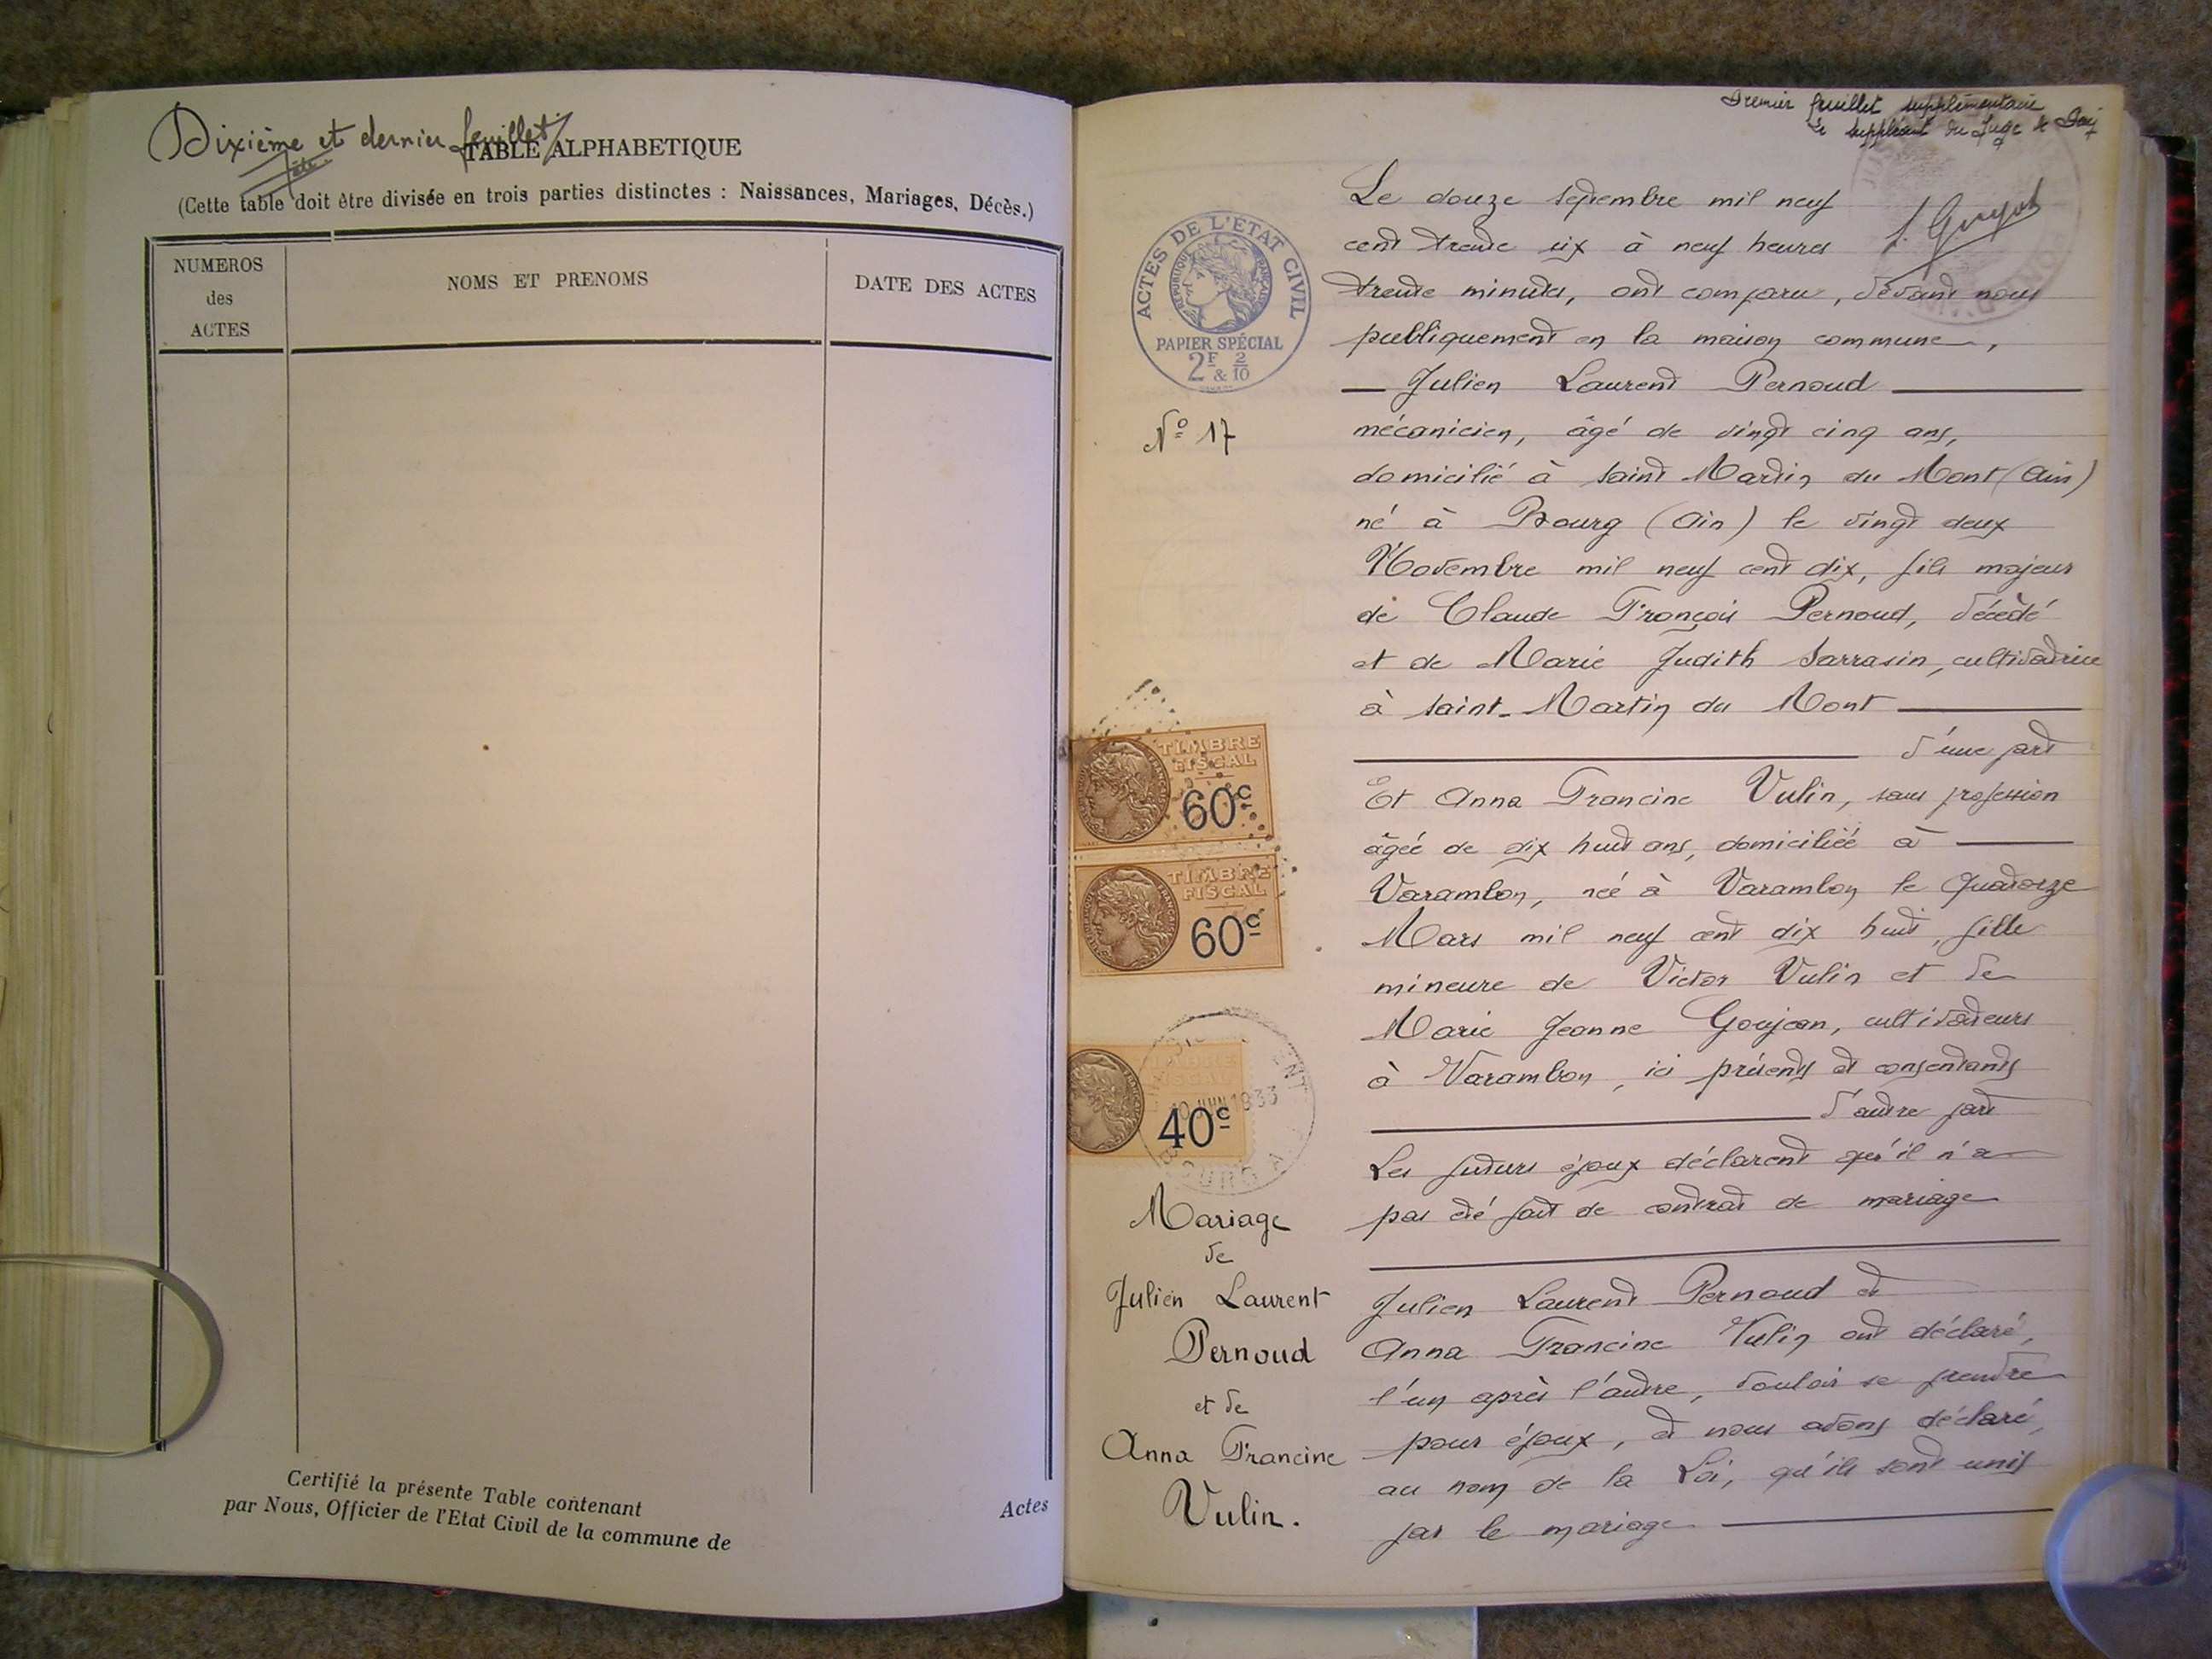 Dixième et dernier feuillet
TABLE ALPHABETIQUE
(Cette table doit être divisée en trois parties distinctes : Naissances, Mariages, Décès.)
NUMEROS
des
ACTES
NOMS ET PRENOMS
DATE DES ACTES
Certifié la présente Table contenant
Actes
par Nous, Officier de l'Etat Civil de la commune de
Premier feuillet supplémentaire
Le suppléant du Juge de Paix
J. Guyot
ACTES DE L'ETAT CIVIL
REPUBLIQUE FRANÇAISE
PAPIER SPÉCIAL
2F & 2/10
Nº 17
TIMBRE
FISCAL
60c
TIMBRE
FISCAL
60c
40c
1933
BOURG
Mariage
de
Julien Laurent
Pernoud
et de
Anna Francine
Vulin.
Le douze septembre mil neuf
cent trente six à neuf heures
trente minutes, ont comparu, devant nous
publiquement en la maison commune,
Julien Laurent Pernoud
mécanicien, âgé de vingt cinq ans,
domicilié à Saint Martin du Mont (Ain)
né à Bourg (Ain) le vingt deux
Novembre mil neuf cent dix, fils majeur
de Claude François Pernoud, décédé
et de Marie Judith Sarrasin, cultivatrice
à Saint-Martin du Mont
d'une part
Et Anna Francine Vulin, sans profession
âgée de dix huit ans, domiciliée à
Varambon, née à Varambon le quatorze
Mars mil neuf cent dix huit, fille
mineure de Victor Vulin et de
Marie Jeanne Goujon, cultivateurs
à Varambon, ici présents et consentants
d'autre part
Les futurs époux déclarent qu'il n'a
pas été fait de contrat de mariage
Julien Laurent Pernoud et
Anna Francine Vulin ont déclaré,
l'un après l'autre, vouloir se prendre
pour époux, et nous avons déclaré,
au nom de la Loi, qu'ils sont unis
par le mariage